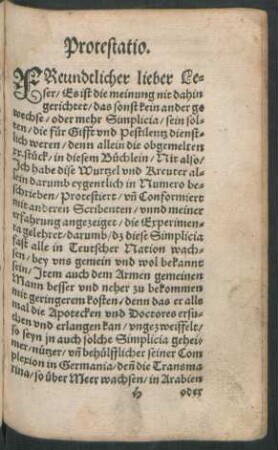 Protestatio.
FReundtlicher lieber Le-
ser/ Es ist die meinung nit dahin
gerichtet/ das sonst kein ander ge
wechse/ oder mehr Simplicia/ sein sol-
ten/ die für Gifft vnd Pestilentz dienst-
lich weren/ denn allein die obgemelten
stück/ in diesem Büchlein/ Nit also/
Ich habe dise Wurtzel vnd Kreuter al-
lein darumb eygentlich in Numero be-
schrieben/ Protestiert/ vñ Conformiert
mit anderen Scribenten/ vnnd meiner
erfahrung angezeiget/ die Experimen-
ta gelehrt/ darumb/ dz diese Simplicia
fast alle in Teutscher Nation wach-
sen/ bey vns gemein vnd wol bekannt
sein/ Item auch dem Armen gemeinen
Mann besser vnd neher zu bekommen
mit geringerem kosten/ denn das er alle
mal die Apotecken vnd Doctores ersu-
chen vnd erlangen kan/ vngezweiffelt/
so seyn jn auch solche Simplicia gehei-
mer/ nützer/ vñ behülfflicher seiner Com
plexion in Germania/ deñ die Transma
rina/ so über Meer wachsen/ in Arabien
h oder